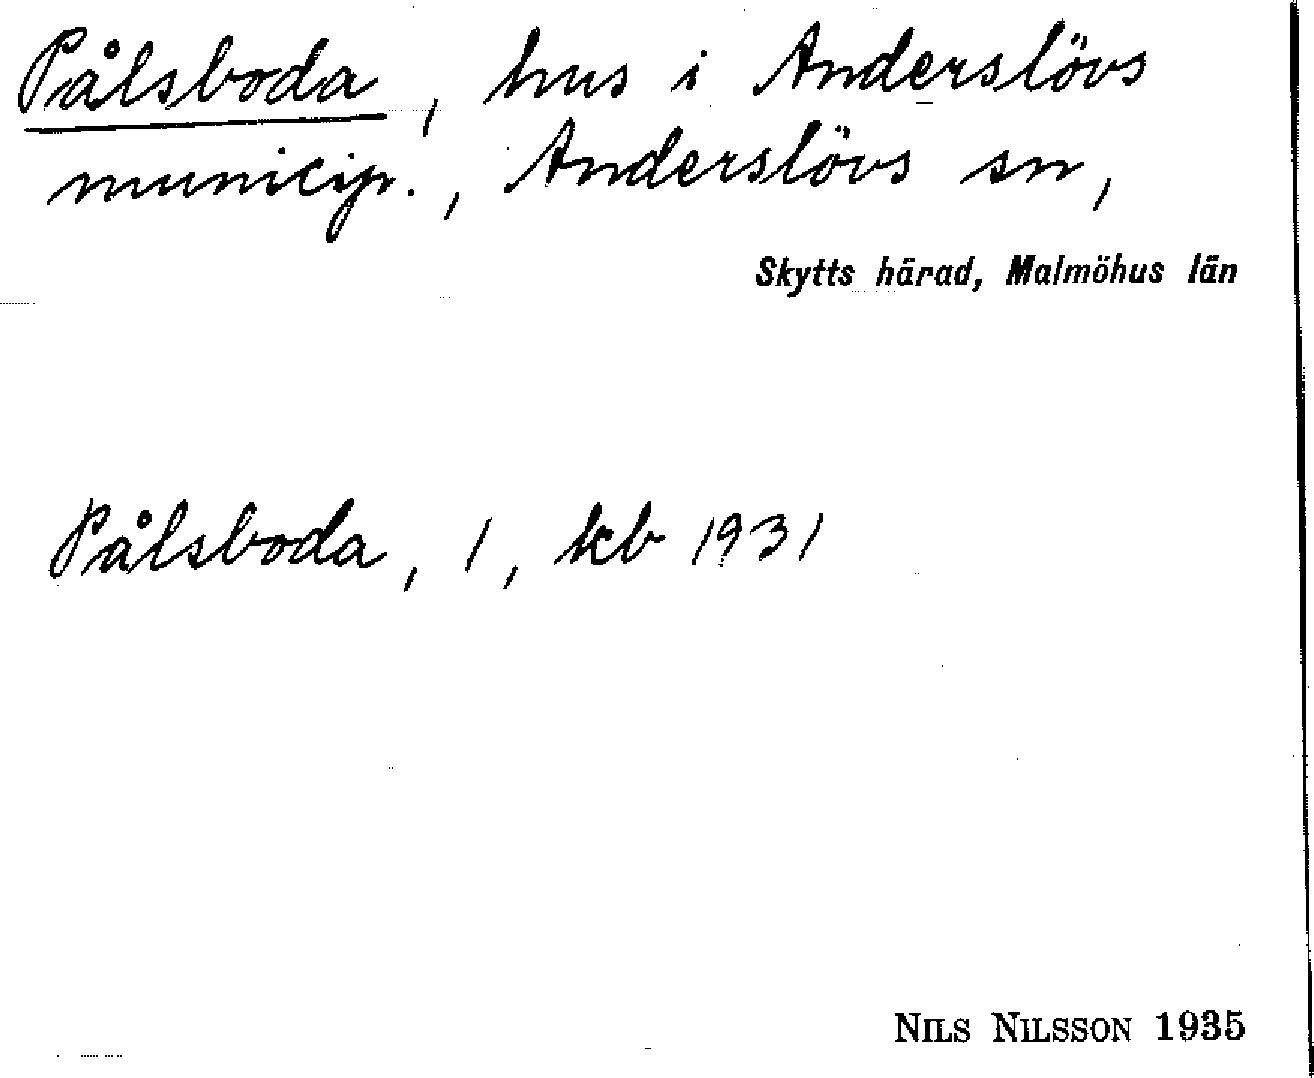 Pålsboda, hus i Anderslövs
municip., Anderslövs sn,
Skytts härad, Malmöhus län
Pålsboda, 1, kb 1931
NILS NILSSON 1935